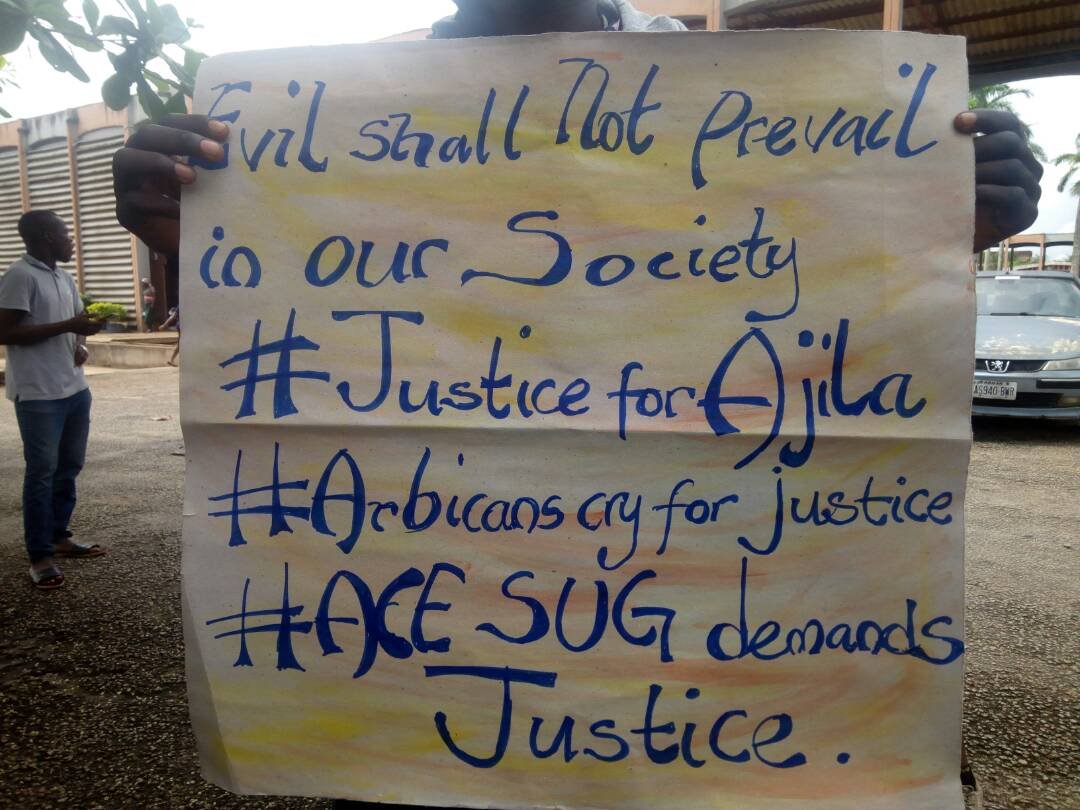 Evil shall Not prevail
in our Society
#Justice for Ajila
#Arbicans cry for justice
#ACE SUG demands
Justice.